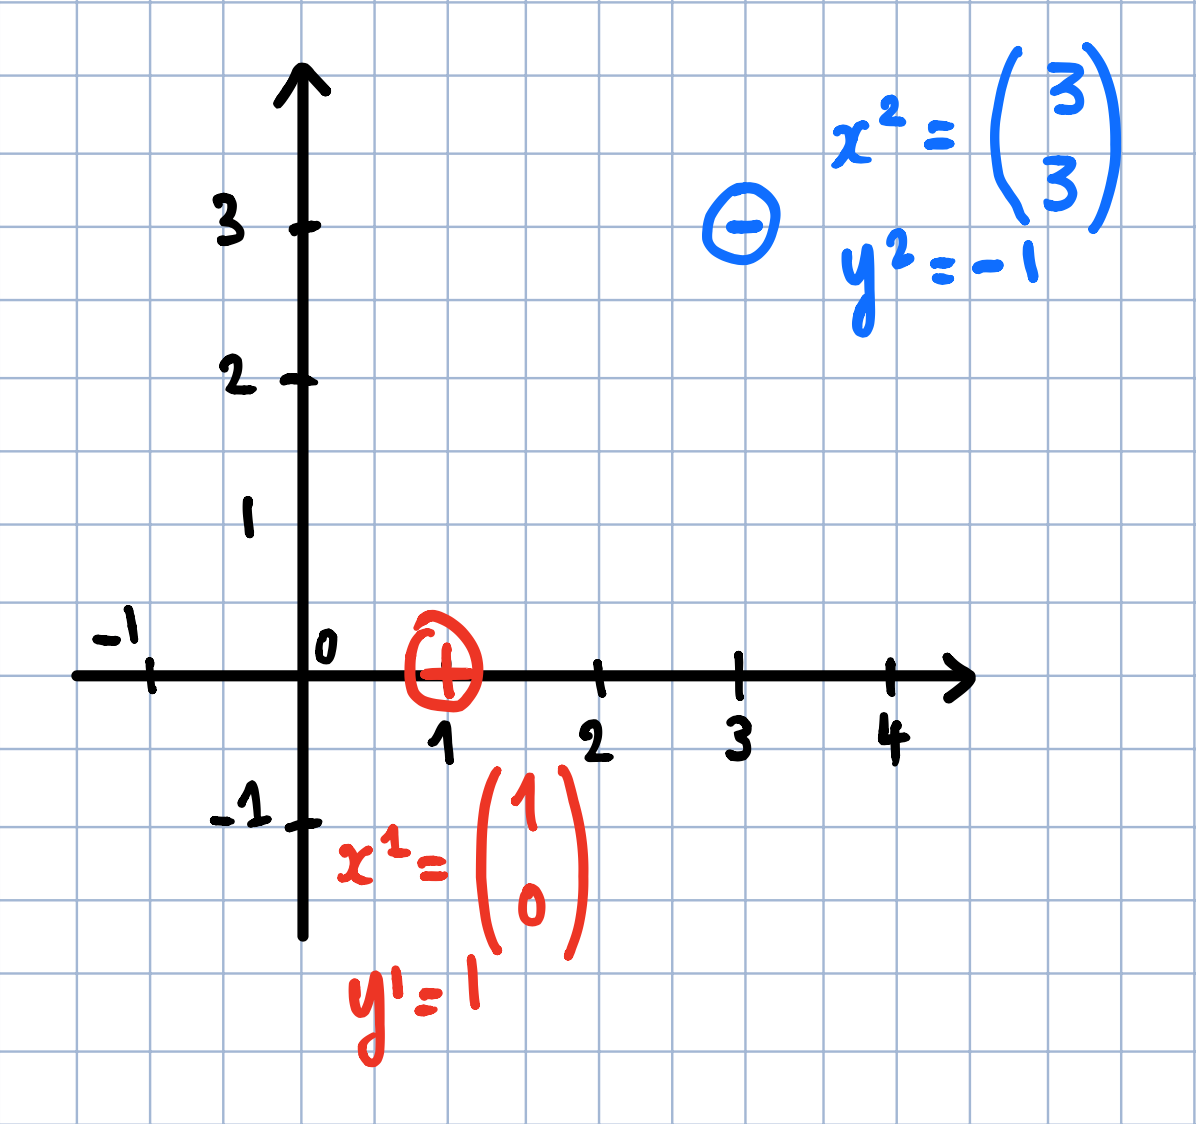 x² = (3
3)
y² = -1
⊖
3
2
1
-1
0
⊕
1 2 3 4
-1
x¹ = (1
0)
y¹ = 1